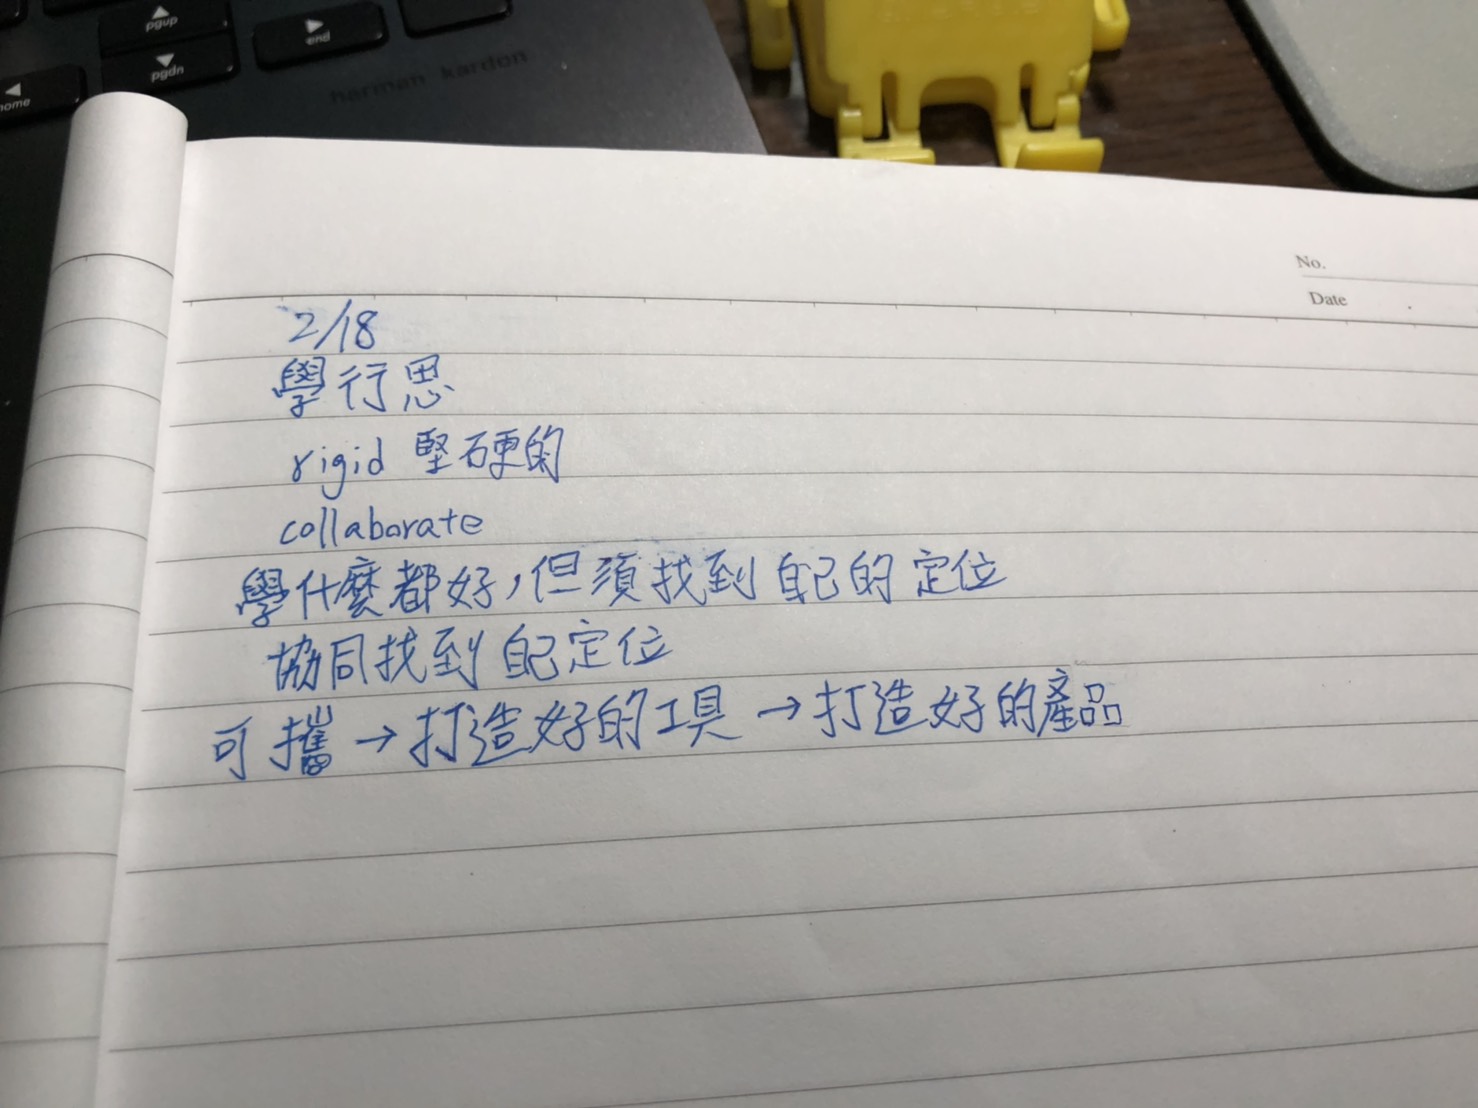 pgup
end
pgdn
home
harman kardon
No.
Date
2/18
學行思
rigid 堅硬的
collaborate
學什麼都好，但須找到自己的定位
協同找到自己定位
可攜→打造好的工具→打造好的產品